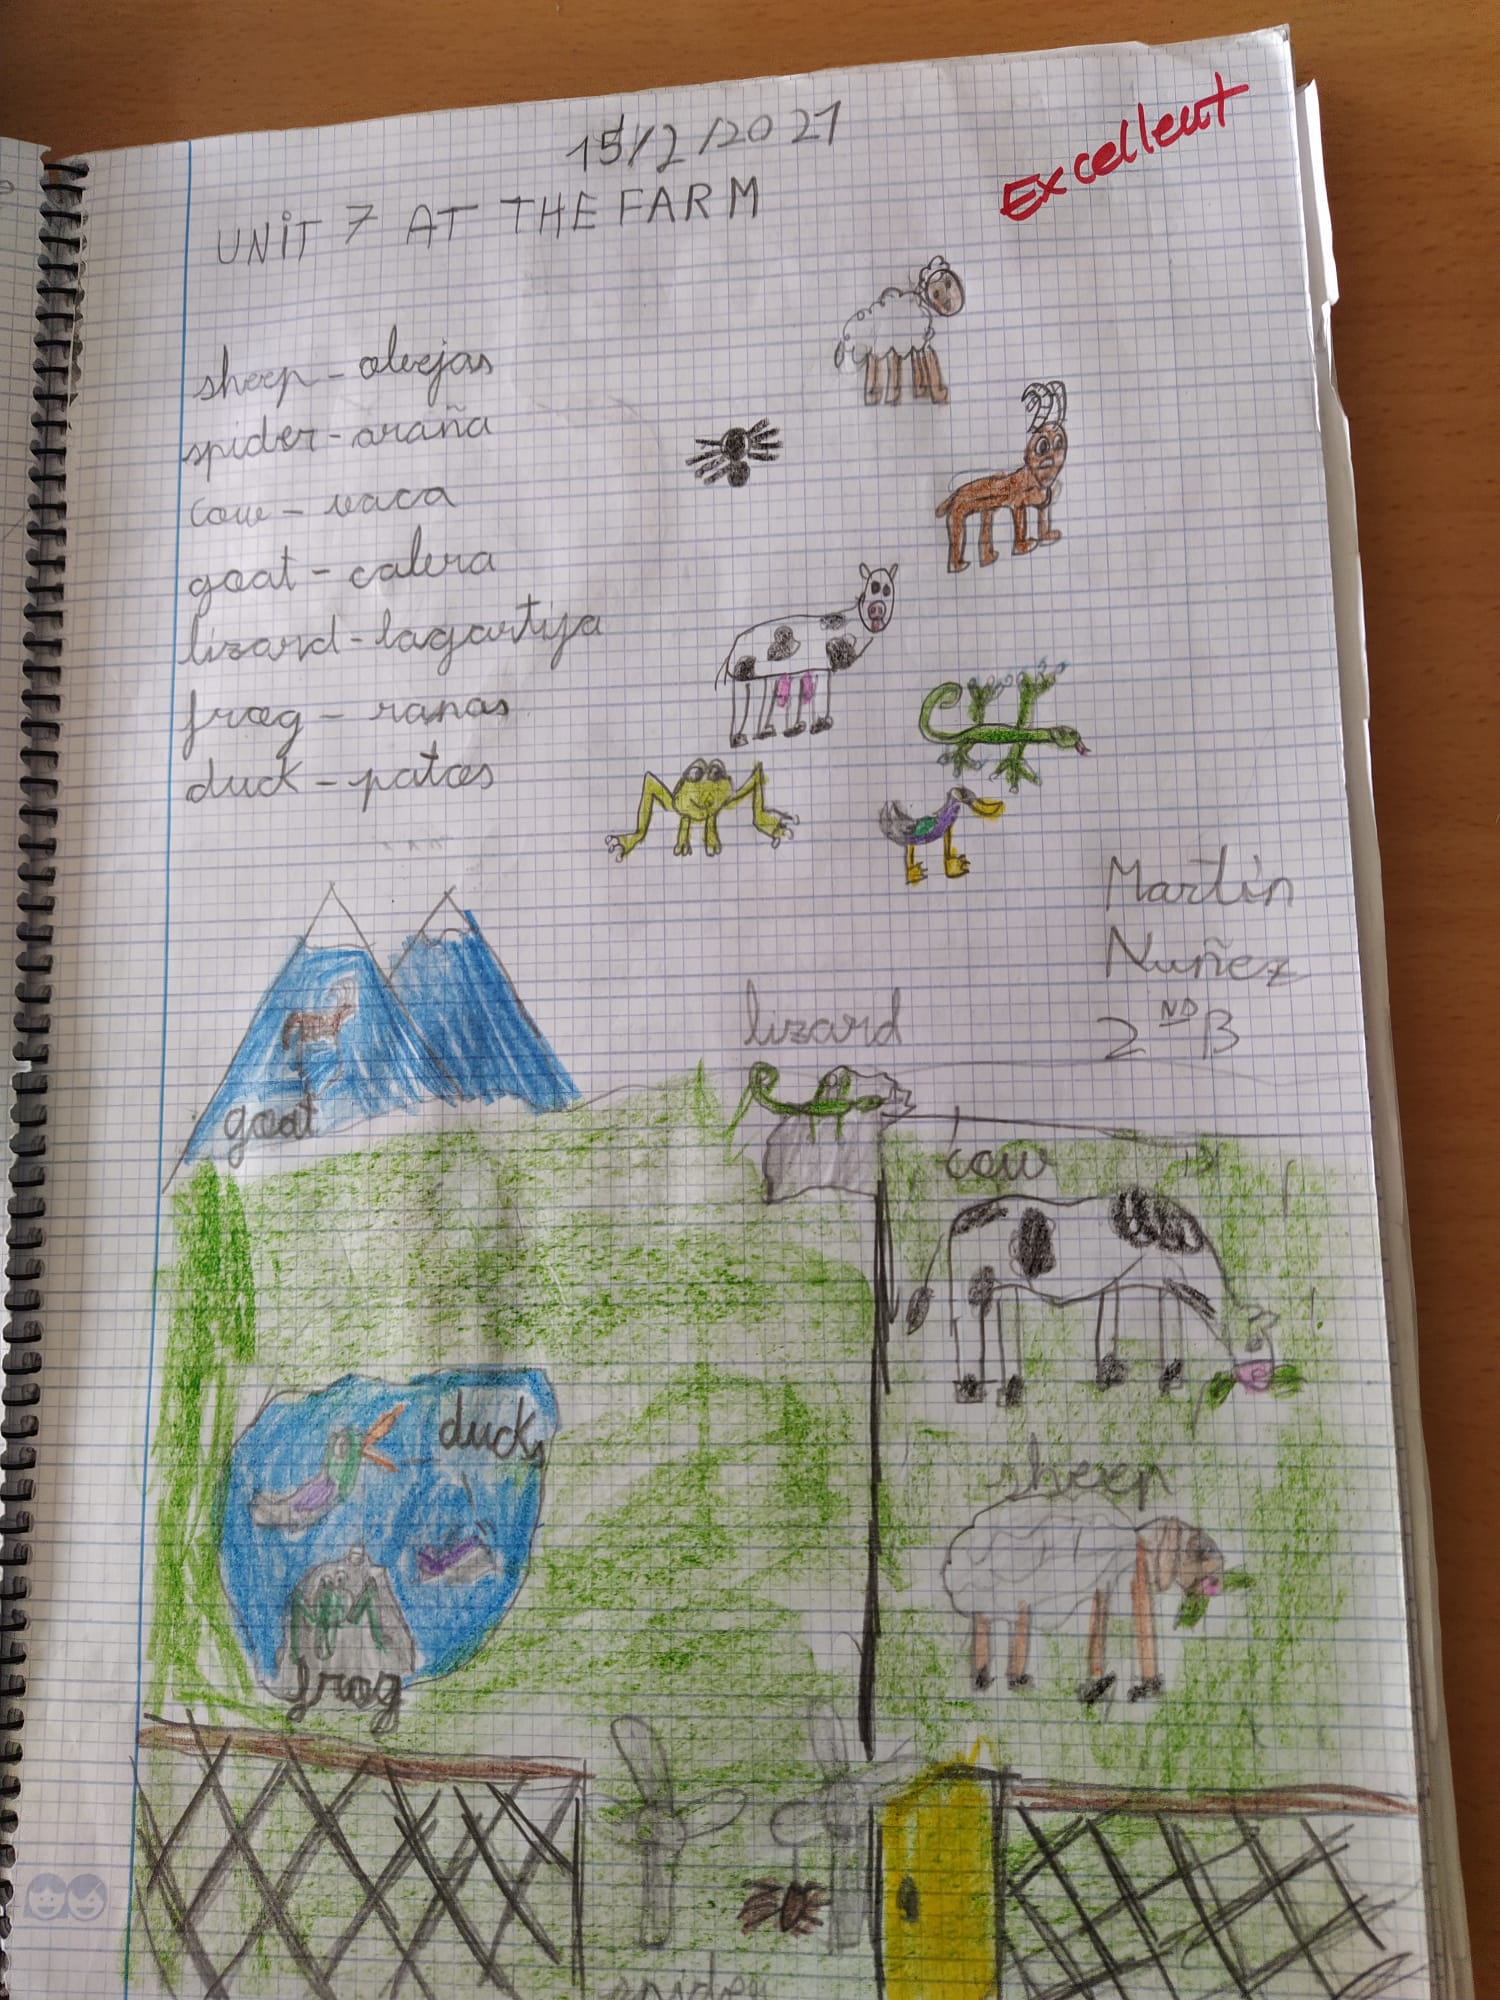 15/2/2021
Excellent
UNIT 7 AT THE FARM
sheep - obejas
spider - araña
cow - vaca
goat - cabra
lizard - lagartija
frog - ranas
duck - patos
Martín
Nuñez
2ND B
lizard
goat
cow
duck
sheep
frog
spider